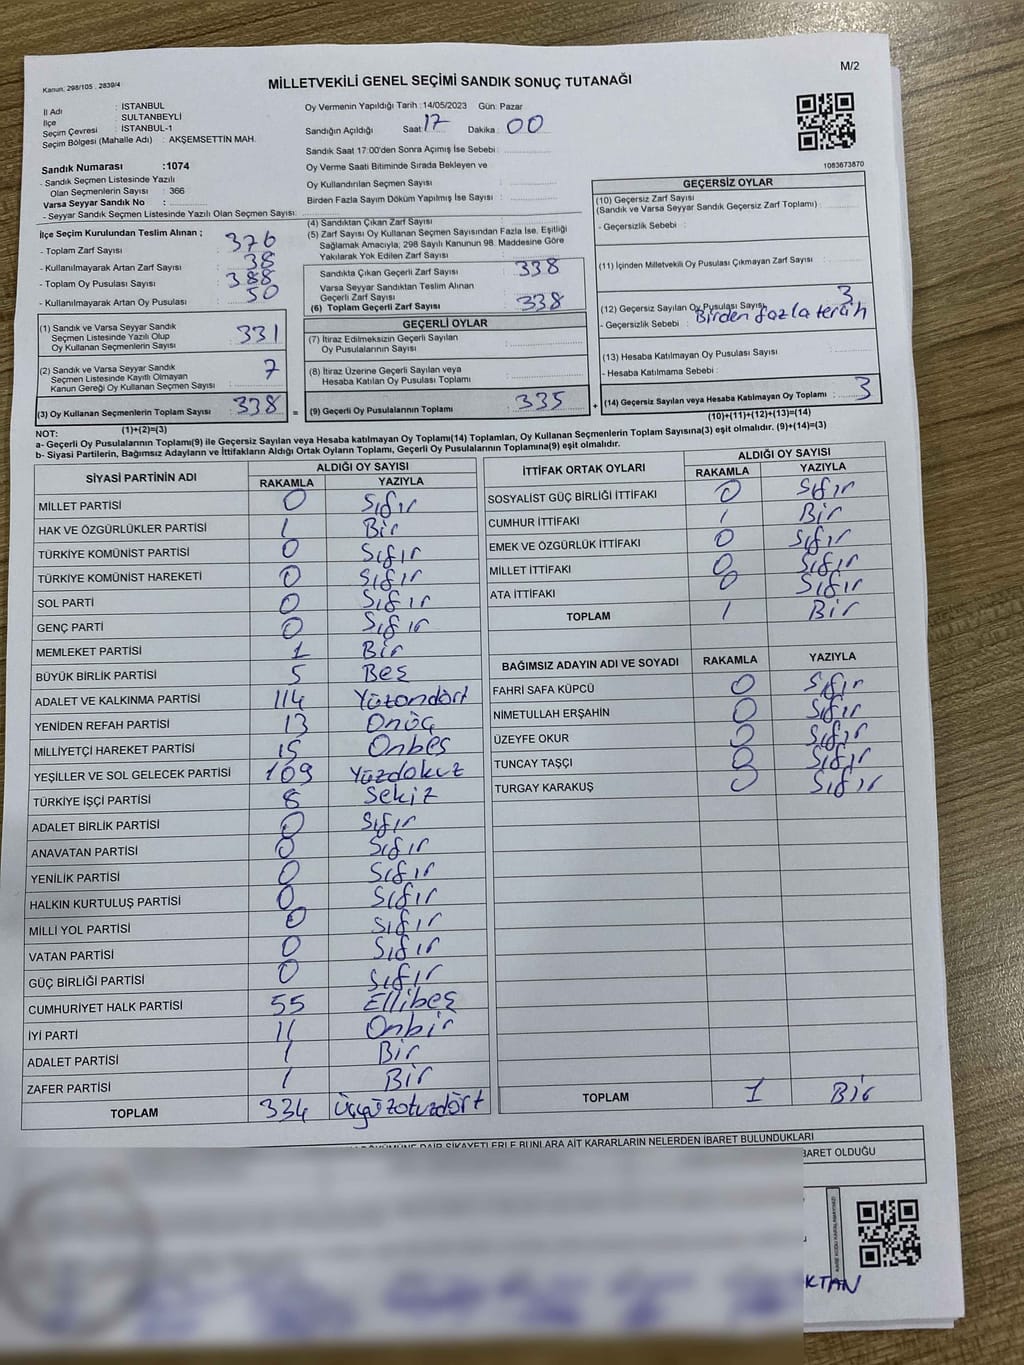 M/2
Kanun, 298/105 , 2839/4
MİLLETVEKİLİ GENEL SEÇİMİ SANDIK SONUÇ TUTANAĞI
İl Adı : İSTANBUL
İlçe : SULTANBEYLİ
Seçim Çevresi : İSTANBUL-1
Seçim Bölgesi (Mahalle Adı) : AKŞEMSETTİN MAH.
Sandık Numarası :1074
- Sandık Seçmen Listesinde Yazılı
Olan Seçmenlerin Sayısı : 366
Varsa Seyyar Sandık No :
- Seyyar Sandık Seçmen Listesinde Yazılı Olan Seçmen Sayısı:
Oy Vermenin Yapıldığı Tarih :14/05/2023 Gün: Pazar
Sandığın Açıldığı Saat: 17 Dakika : 00
Sandık Saat 17:00'den Sonra Açımış İse Sebebi :
Oy Verme Saati Bitiminde Sırada Bekleyen ve
Oy Kullandırılan Seçmen Sayısı
Birden Fazla Sayım Döküm Yapılmış İse Sayısı :
1083673870
İlçe Seçim Kurulundan Teslim Alınan ;
- Toplam Zarf Sayısı 376
- Kullanılmayarak Artan Zarf Sayısı 38
- Toplam Oy Pusulası Sayısı 388
- Kullanılmayarak Artan Oy Pusulası 50
(1) Sandık ve Varsa Seyyar Sandık
Seçmen Listesinde Yazılı Olup
Oy Kullanan Seçmenlerin Sayısı 331
(2) Sandık ve Varsa Seyyar Sandık
Seçmen Listesinde Kayıtlı Olmayan
Kanun Gereği Oy Kullanan Seçmen Sayısı 7
(3) Oy Kullanan Seçmenlerin Toplam Sayısı : 338 =
(1)+(2)=(3)
(4) Sandıktan Çıkan Zarf Sayısı
(5) Zarf Sayısı Oy Kullanan Seçmen Sayısından Fazla İse, Eşitliği
Sağlamak Amacıyla; 298 Sayılı Kanunun 98. Maddesine Göre
Yakılarak Yok Edilen Zarf Sayısı
Sandıkta Çıkan Geçerli Zarf Sayısı 338
Varsa Seyyar Sandıktan Teslim Alınan
Geçerli Zarf Sayısı
(6) Toplam Geçerli Zarf Sayısı 338
GEÇERLİ OYLAR
(7) İtiraz Edilmeksizin Geçerli Sayılan
Oy Pusulalarının Sayısı
(8) İtiraz Üzerine Geçerli Sayılan veya
Hesaba Katılan Oy Pusulası Toplamı
(9) Geçerli Oy Pusulalarının Toplamı 335 +
GEÇERSİZ OYLAR
(10) Geçersiz Zarf Sayısı
(Sandık ve Varsa Seyyar Sandık Geçersiz Zarf Toplamı) :
- Geçersizlik Sebebi :
(11) İçinden Milletvekili Oy Pusulası Çıkmayan Zarf Sayısı :
(12) Geçersiz Sayılan Oy Pusulası Sayısı 3
- Geçersizlik Sebebi : Birden fazla tercih
(13) Hesaba Katılmayan Oy Pusulası Sayısı
- Hesaba Katılmama Sebebi :
(14) Geçersiz Sayılan veya Hesaba Katılmayan Oy Toplamı : 3
(10)+(11)+(12)+(13)=(14)
NOT:
a- Geçerli Oy Pusulalarının Toplamı(9) ile Geçersiz Sayılan veya Hesaba katılmayan Oy Toplamı(14) Toplamları, Oy Kullanan Seçmenlerin Toplam Sayısına(3) eşit olmalıdır. (9)+(14)=(3)
b- Siyasi Partilerin, Bağımsız Adayların ve İttifakların Aldığı Ortak Oyların Toplamı, Geçerli Oy Pusulalarının Toplamına(9) eşit olmalıdır.
SİYASİ PARTİNİN ADI ALDIĞI OY SAYISI
RAKAMLA YAZIYLA
MİLLET PARTİSİ 0 Sıfır
HAK VE ÖZGÜRLÜKLER PARTİSİ 1 Bir
TÜRKİYE KOMÜNİST PARTİSİ 0 Sıfır
TÜRKİYE KOMÜNİST HAREKETİ 0 Sıfır
SOL PARTİ 0 Sıfır
GENÇ PARTİ 0 Sıfır
MEMLEKET PARTİSİ 1 Bir
BÜYÜK BİRLİK PARTİSİ 5 Beş
ADALET VE KALKINMA PARTİSİ 114 Yüzondört
YENİDEN REFAH PARTİSİ 13 Onüç
MİLLİYETÇİ HAREKET PARTİSİ 15 Onbeş
YEŞİLLER VE SOL GELECEK PARTİSİ 109 Yüzdokuz
TÜRKİYE İŞÇİ PARTİSİ 8 Sekiz
ADALET BİRLİK PARTİSİ 0 Sıfır
ANAVATAN PARTİSİ 0 Sıfır
YENİLİK PARTİSİ 0 Sıfır
HALKIN KURTULUŞ PARTİSİ 0 Sıfır
MİLLİ YOL PARTİSİ 0 Sıfır
VATAN PARTİSİ 0 Sıfır
GÜÇ BİRLİĞİ PARTİSİ 0 Sıfır
CUMHURİYET HALK PARTİSİ 55 Ellibeş
İYİ PARTİ 11 Onbir
ADALET PARTİSİ 1 Bir
ZAFER PARTİSİ 1 Bir
TOPLAM 334 Üçyüzotuzdört
İTTİFAK ORTAK OYLARI ALDIĞI OY SAYISI
RAKAMLA YAZIYLA
SOSYALİST GÜÇ BİRLİĞİ İTTİFAKI 0 Sıfır
CUMHUR İTTİFAKI 1 Bir
EMEK VE ÖZGÜRLÜK İTTİFAKI 0 Sıfır
MİLLET İTTİFAKI 0 Sıfır
ATA İTTİFAKI 0 Sıfır
TOPLAM 1 Bir
BAĞIMSIZ ADAYIN ADI VE SOYADI RAKAMLA YAZIYLA
FAHRİ SAFA KÜPCÜ 0 Sıfır
NİMETULLAH ERŞAHİN 0 Sıfır
ÜZEYFE OKUR 0 Sıfır
TUNCAY TAŞÇI 0 Sıfır
TURGAY KARAKUŞ 0 Sıfır
TOPLAM 1 Bir
DÖKÜMÜNE DAİR ŞİKAYETLERLE BUNLARA AİT KARARLARIN NELERDEN İBARET BULUNDUKLARI
BARET OLDUĞU
KTAN